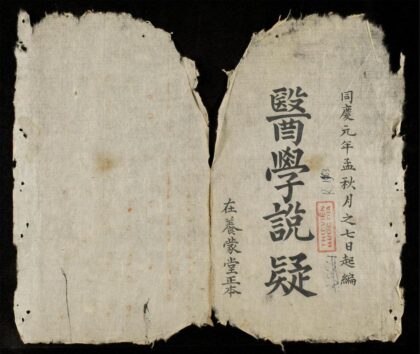 同慶元年孟秋月之七日起編
醫學說疑
在養蒙堂正本